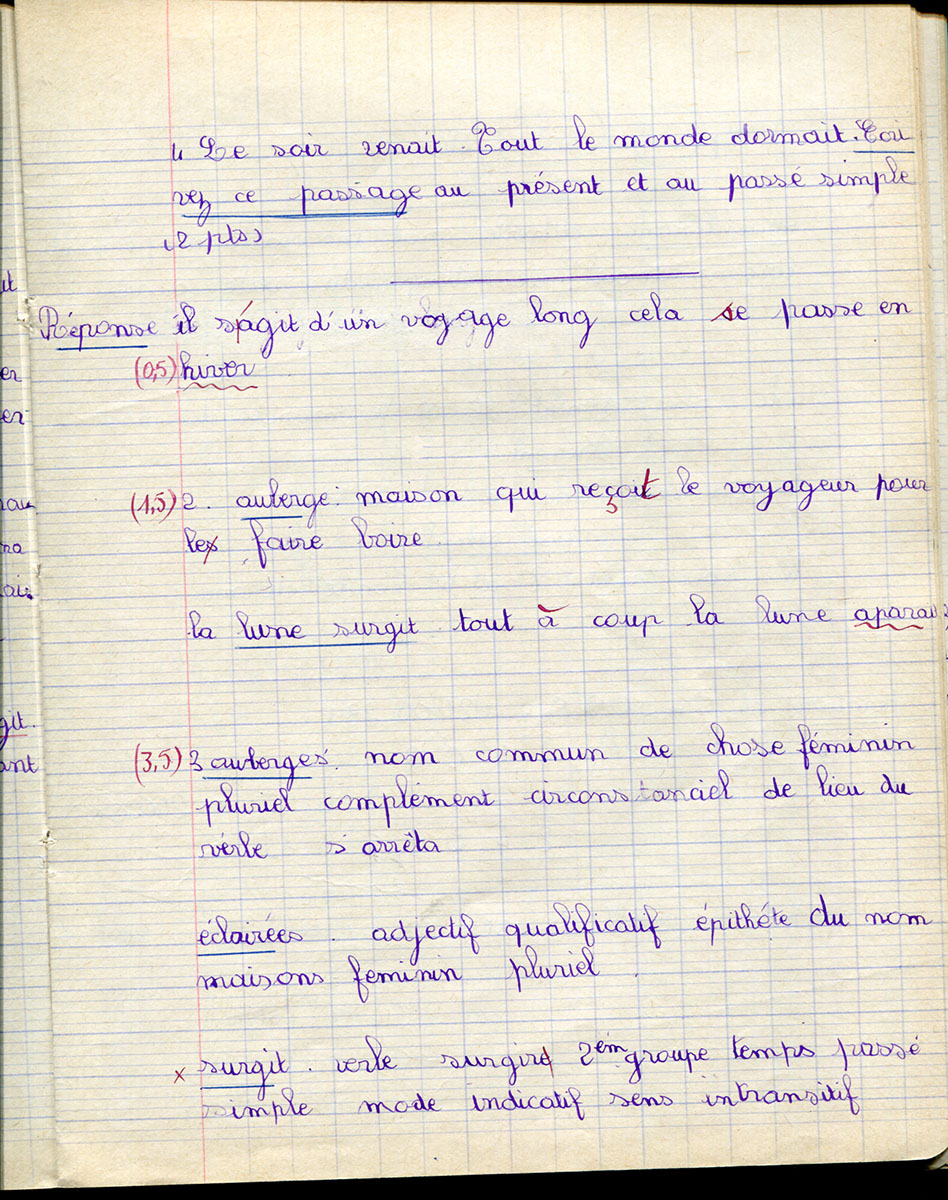 4 Le soir venait. Tout le monde dormait. Ecri
vez ce passage au présent et au passé simple
(2 pts)
Réponse il s'agit d'un voyage long cela se passe en
(0,5) hiver
(1,5) 2. auberge : maison qui reçoit le voyageur pour
les faire boire.
la lune surgit tout à coup la lune aparai
(3,5) 3 auberges. nom commun de chose féminin
pluriel complément circonstanciel de lieu du
verbe s'arrêta
éclairées. adjectif qualificatif épithéte du nom
maisons feminin pluriel.
x surgit. verbe surgire 2em groupe temps passé
simple mode indicatif sens intransitif
er
er
au
na
ai
git.
ant